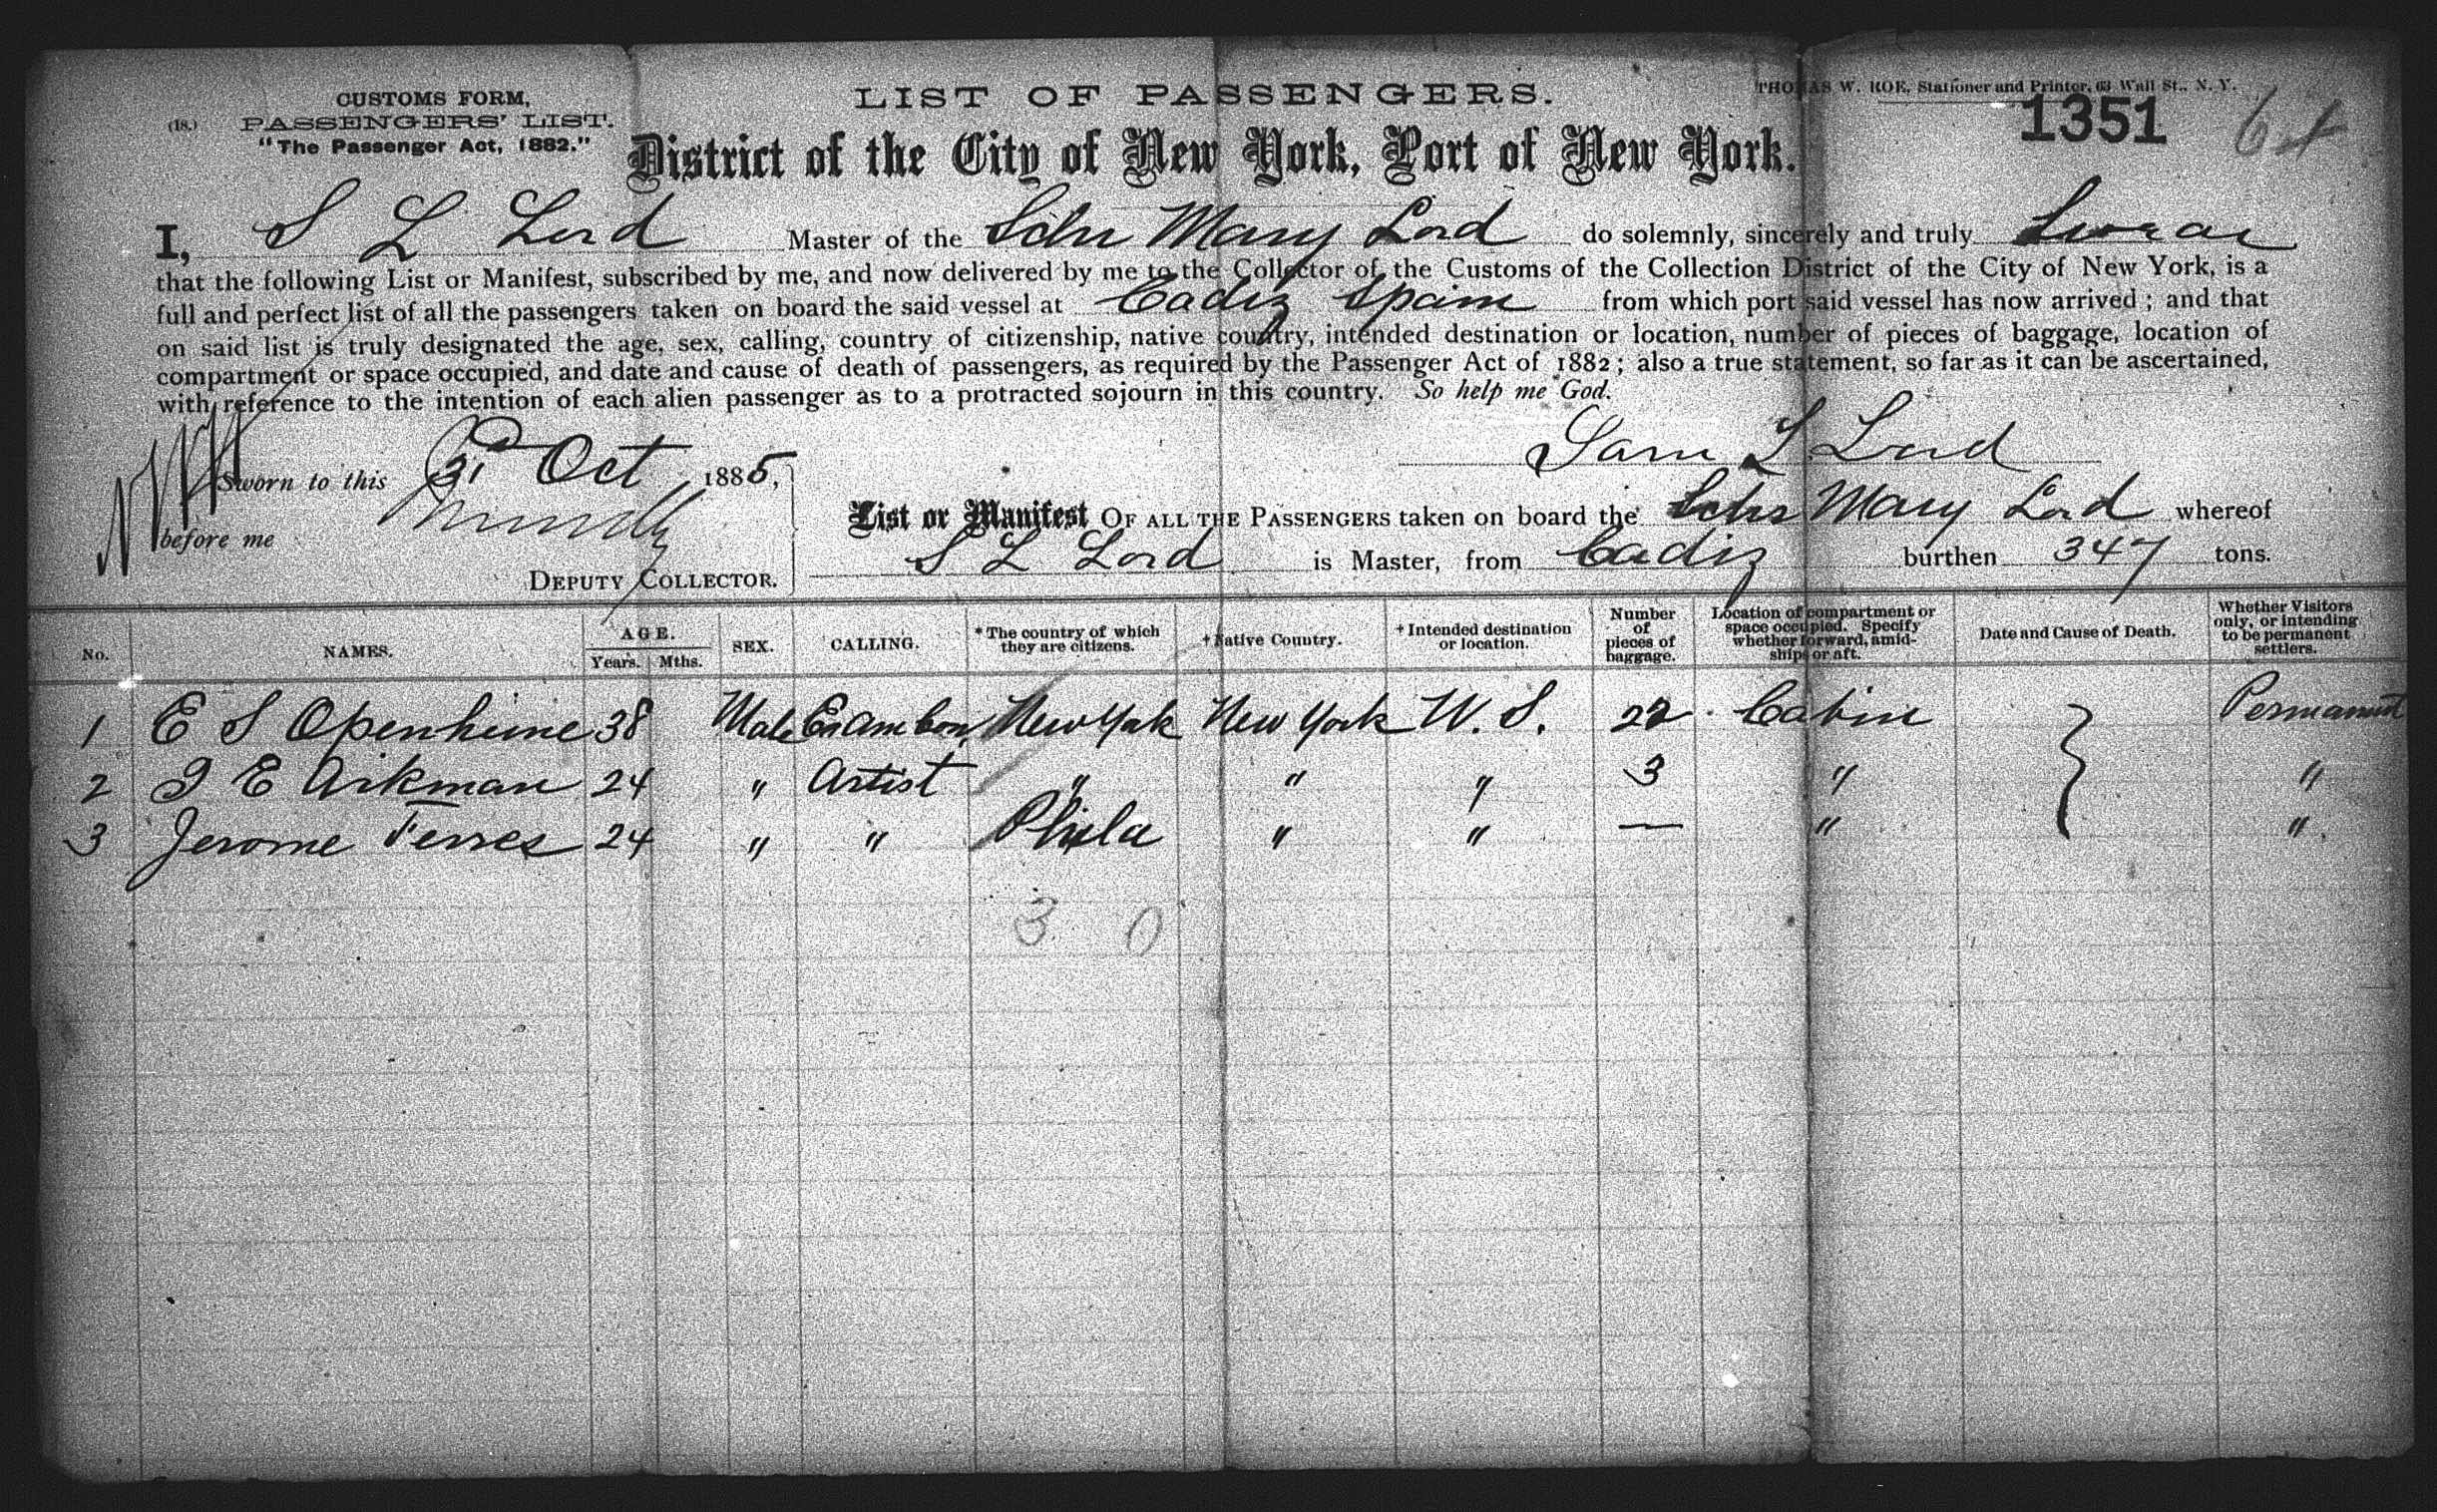 CUSTOMS FORM,
(18.) PASSENGERS' LIST.
"The Passenger Act, 1882."
LIST OF PASSENGERS.
THOMAS W. ROE, Stationer and Printer, 63 Wall St., N. Y.
1351
District of the City of New York, Port of New York.
I, S L Lord Master of the Schr Mary Lord do solemnly, sincerely and truly Swear
that the following List or Manifest, subscribed by me, and now delivered by me to the Collector of the Customs of the Collection District of the City of New York, is a
full and perfect list of all the passengers taken on board the said vessel at Cadiz Spain from which port said vessel has now arrived; and that
on said list is truly designated the age, sex, calling, country of citizenship, native country, intended destination or location, number of pieces of baggage, location of
compartment or space occupied, and date and cause of death of passengers, as required by the Passenger Act of 1882; also a true statement, so far as it can be ascertained,
with reference to the intention of each alien passenger as to a protracted sojourn in this country. So help me God.
Sam L Lord
Sworn to this Oct 1885,
before me
DEPUTY COLLECTOR.
List or Manifest OF ALL THE PASSENGERS taken on board the Schr Mary Lord whereof
S L Lord is Master, from Cadiz burthen 347 tons.
No. NAMES. AGE. Years. Mths. SEX. CALLING. *The country of which they are citizens. †Native Country. †Intended destination or location. Number of pieces of baggage. Location of compartment or space occupied. Specify whether forward, amidship, or aft. Date and Cause of Death. Whether Visitors only, or intending to be permanent settlers.
1 E S Openhime 38 Male New York New York U. S. 22 Cabin Permanent
2 J E Aikman 24 " Artist " " " 3 " "
3 Jerome Ferres 24 " " Phila " " — " "
3 0